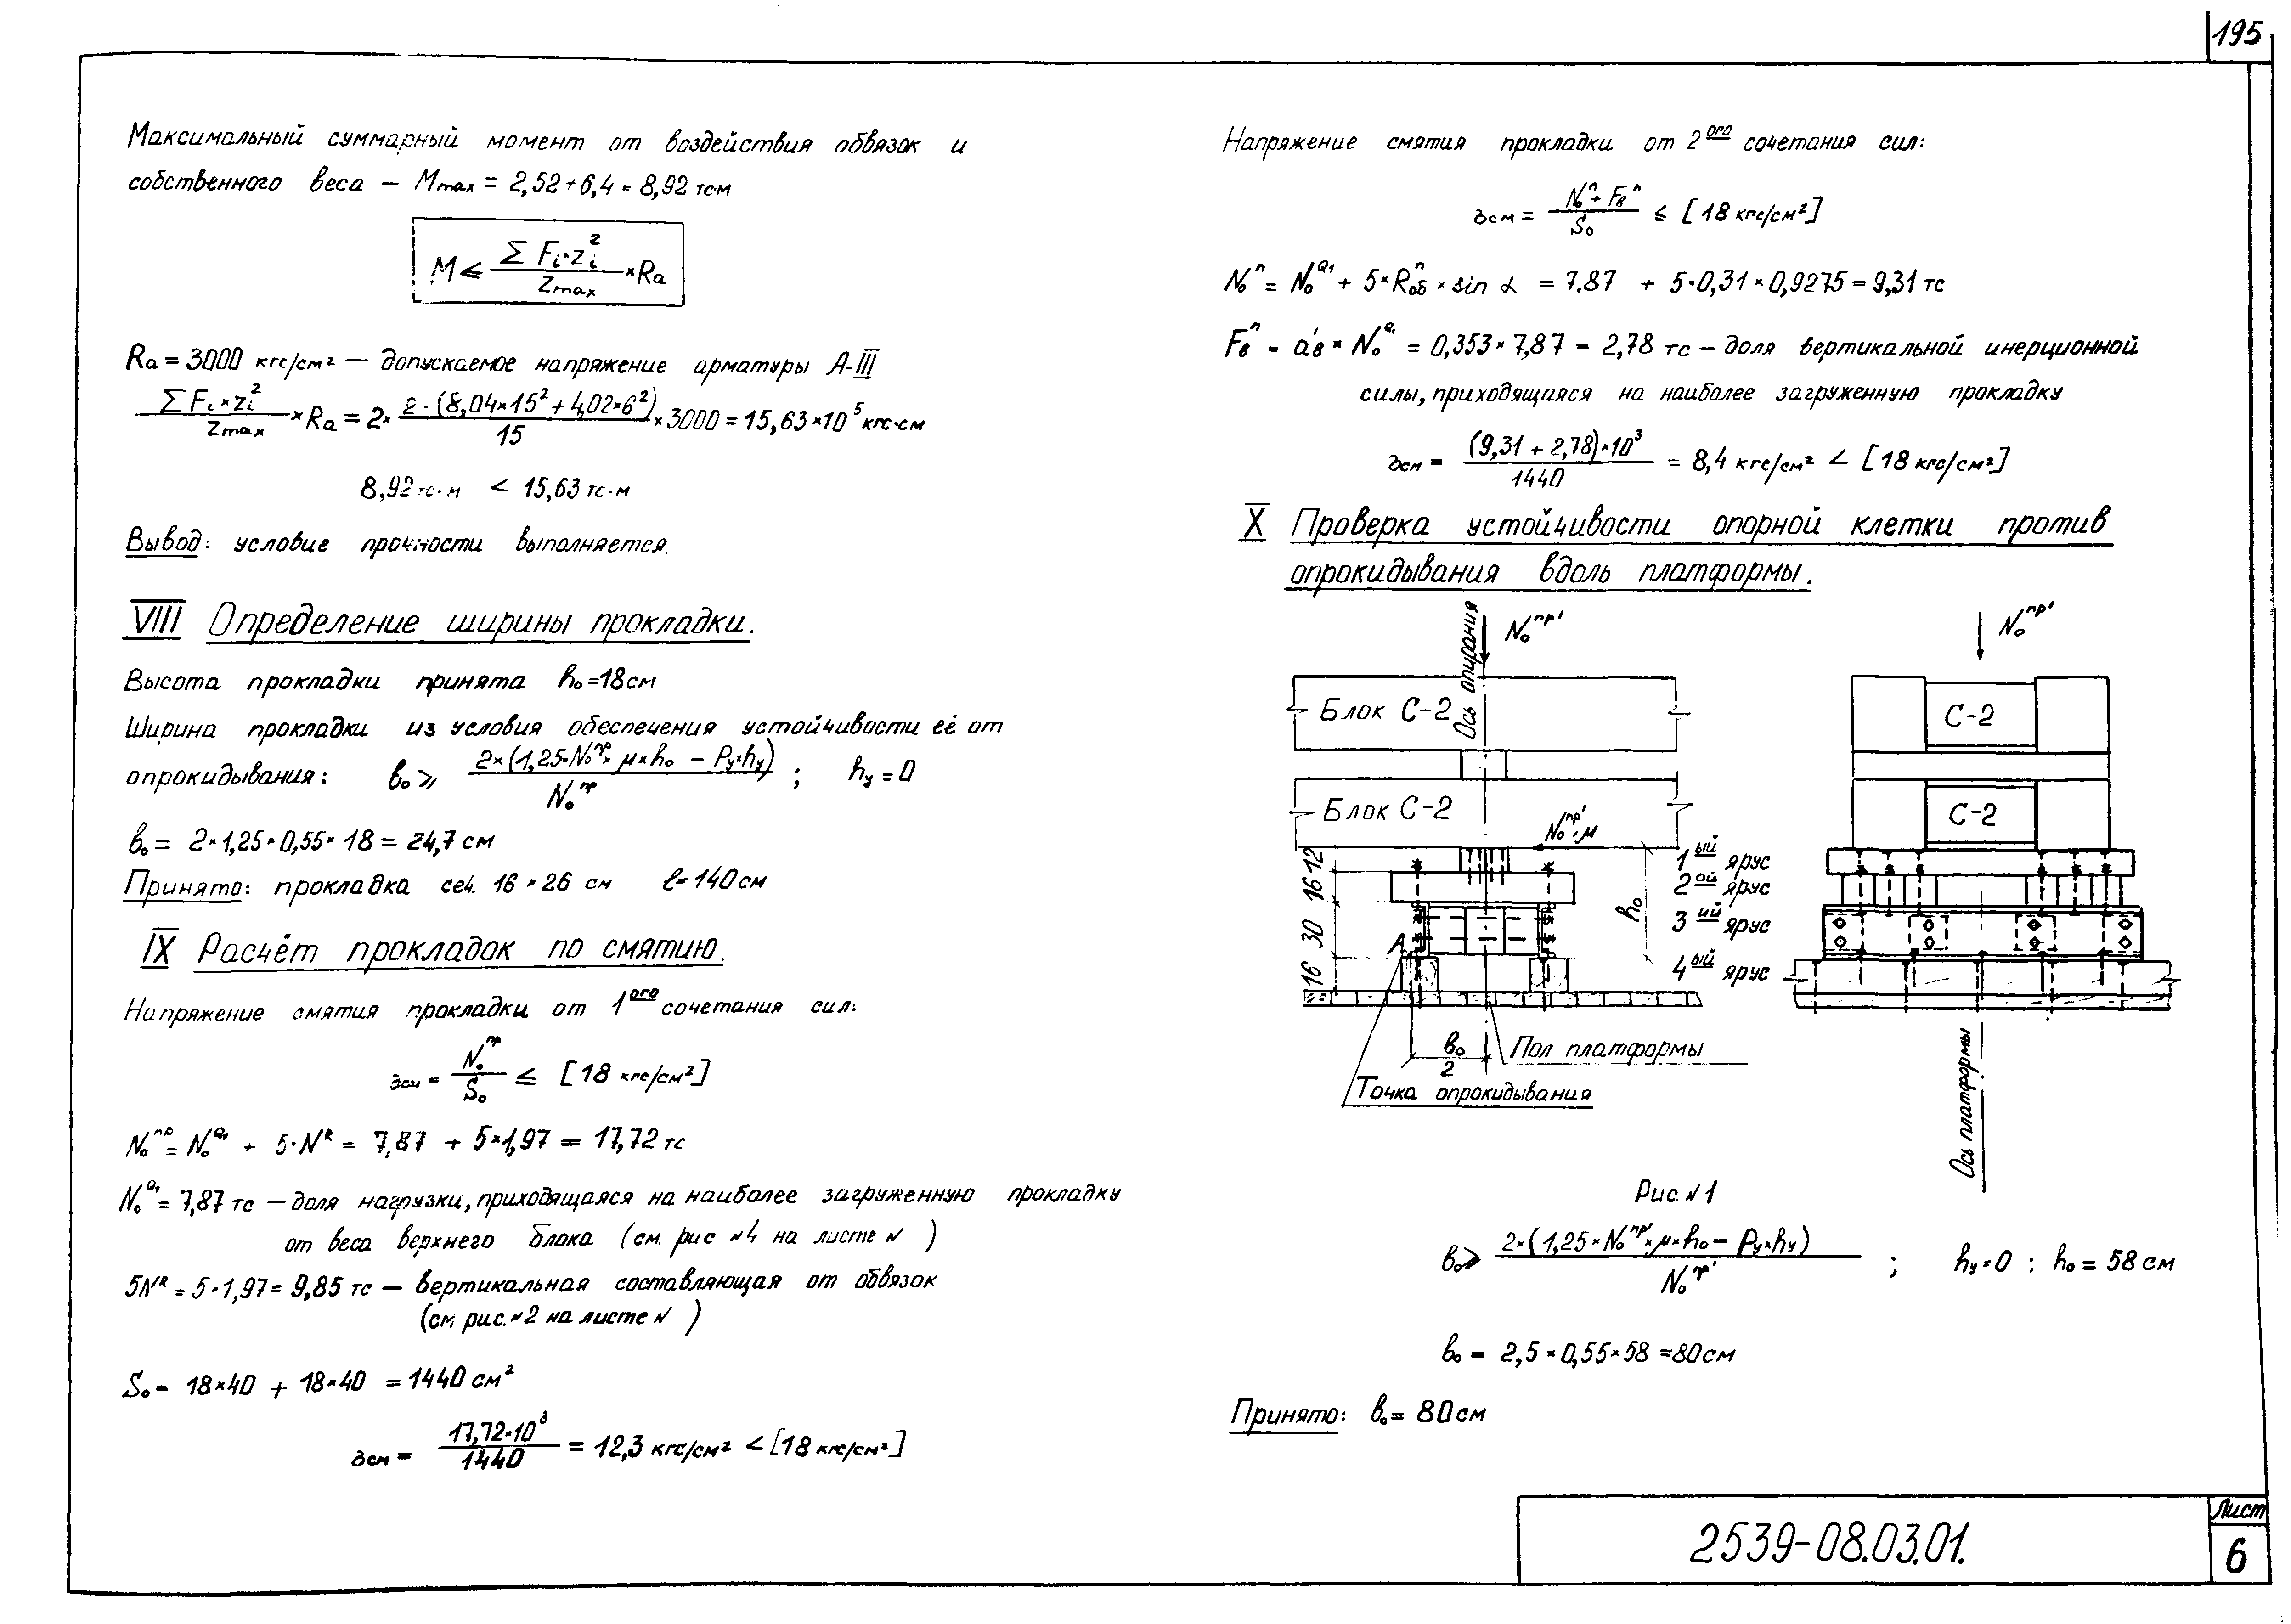 195
Максимальный суммарный момент от воздействия обвязок и
собственного веса — Mmax = 2,52+6,4 = 8,92 тс·м
M ≤ ΣFi×zi² / Zmax × Ra
Ra = 3000 кгс/см² — допускаемое напряжение арматуры А-III
ΣFi×zi² / Zmax × Ra = 2× 2·(8,04×15²+4,02×6²) / 15 ×3000 = 15,63×10⁵ кгс·см
8,92 тс·м < 15,63 тс·м
Вывод: условие прочности выполняется.
VIII Определение ширины прокладки.
Высота прокладки принята ho=18см
Ширина прокладки из условия обеспечения устойчивости её от
опрокидывания: во ⩾ 2×(1,25×Noпр×μ×ho – Py×hy) / Noпр ; hy=0
во = 2×1,25×0,55×18 = 24,7 см
Принято: прокладка сеч. 16×26 см ℓ=140см
IX Расчёт прокладок по смятию.
Напряжение смятия прокладки от 1ого сочетания сил:
зсм = Noпр / So ≤ [18 кгс/см²]
Noпр = NoQ1 + 5·NR = 7,87 + 5×1,97 = 17,72 тс
NoQ1 = 7,87 тс — доля нагрузки, приходящаяся на наиболее загруженную прокладку
от веса верхнего блока (см. рис №4 на листе № )
5NR = 5·1,97 = 9,85 тс — вертикальная составляющая от обвязок
(см рис. №2 на листе № )
So = 18×40 + 18×40 = 1440 см²
зсм = 17,72·10³ / 1440 = 12,3 кгс/см² < [18 кгс/см²]
Напряжение смятия прокладки от 2ого сочетания сил:
зсм = Noп + Fвп / So ≤ [18 кгс/см²]
Noп = NoQ1 + 5×Rобп × sin α = 7.87 + 5·0,31×0,9275 = 9,31 тс
Fвп = а'в × NoQ1 = 0,353×7,87 = 2,78 тс — доля вертикальной инерционной
силы, приходящаяся на наиболее загруженную прокладку
зсм = (9,31 + 2,78)·10³ / 1440 = 8,4 кгс/см² < [18 кгс/см²]
X Проверка устойчивости опорной клетки против
опрокидывания вдоль платформы.
Ось опирания
Noпр'
Noпр'
Блок С-2
С-2
Блок С-2
С-2
Noпр'·μ
12
16
30
16
ho
А
1ый ярус
2ой ярус
3ий ярус
4ый ярус
во / 2
Пол платформы
Точка опрокидывания
Ось платформы
Рис. №1
во ⩾ 2×(1,25×Noпр'×μ×ho – Py×hy) / Noпр' ; hy=0 ; ho = 58 см
во = 2,5×0,55×58 = 80см
Принято: во = 80см
2539-08.03.01.
Лист
6